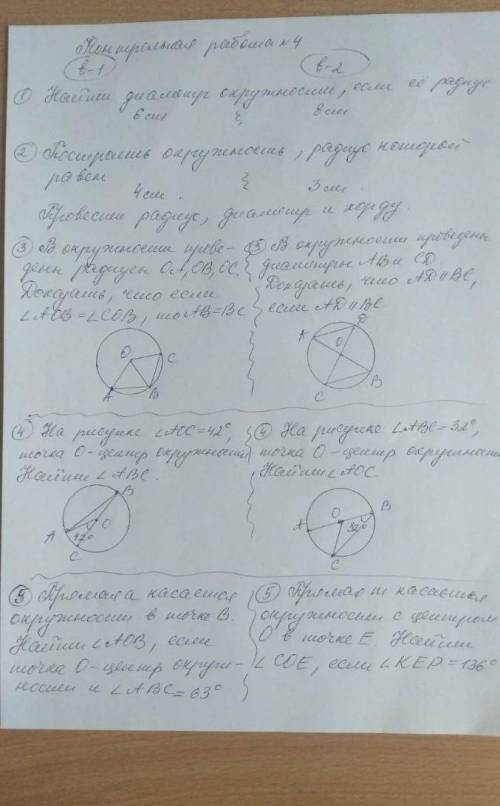 Контрольная работа №4
в-1 в-2
① Найти диаметр окружности, если её радиус
6 см 8 см
② Построить окружность, радиус которой
равен
4 см. 3 см.
Провести радиус, диаметр и хорду.
③ В окружности прове-
дены радиусы OA, OB, OC.
Доказать, что если
∠AOB = ∠COB, то AB = BC
O
C
A
B
③ В окружности проведены
диаметры AB и CD
Доказать, что AD ∥ BC,
если AD ∥ BC
A
D
O
B
C
④ На рисунке ∠AOC = 42°,
точка O - центр окружности
Найти ∠ABC.
B
O
A
42°
C
④ На рисунке ∠ABC = 32°,
точка O - центр окружности
Найти ∠AOC
O
B
A
32°
C
⑤ Прямая a касается
окружности в точке B.
Найти ∠AOB, если
точка O - центр окруж-
ности и ∠ABC = 63°
⑤ Прямая m касается
окружности с центром
O в точке E. Найти
∠COE, если ∠KEP = 136°